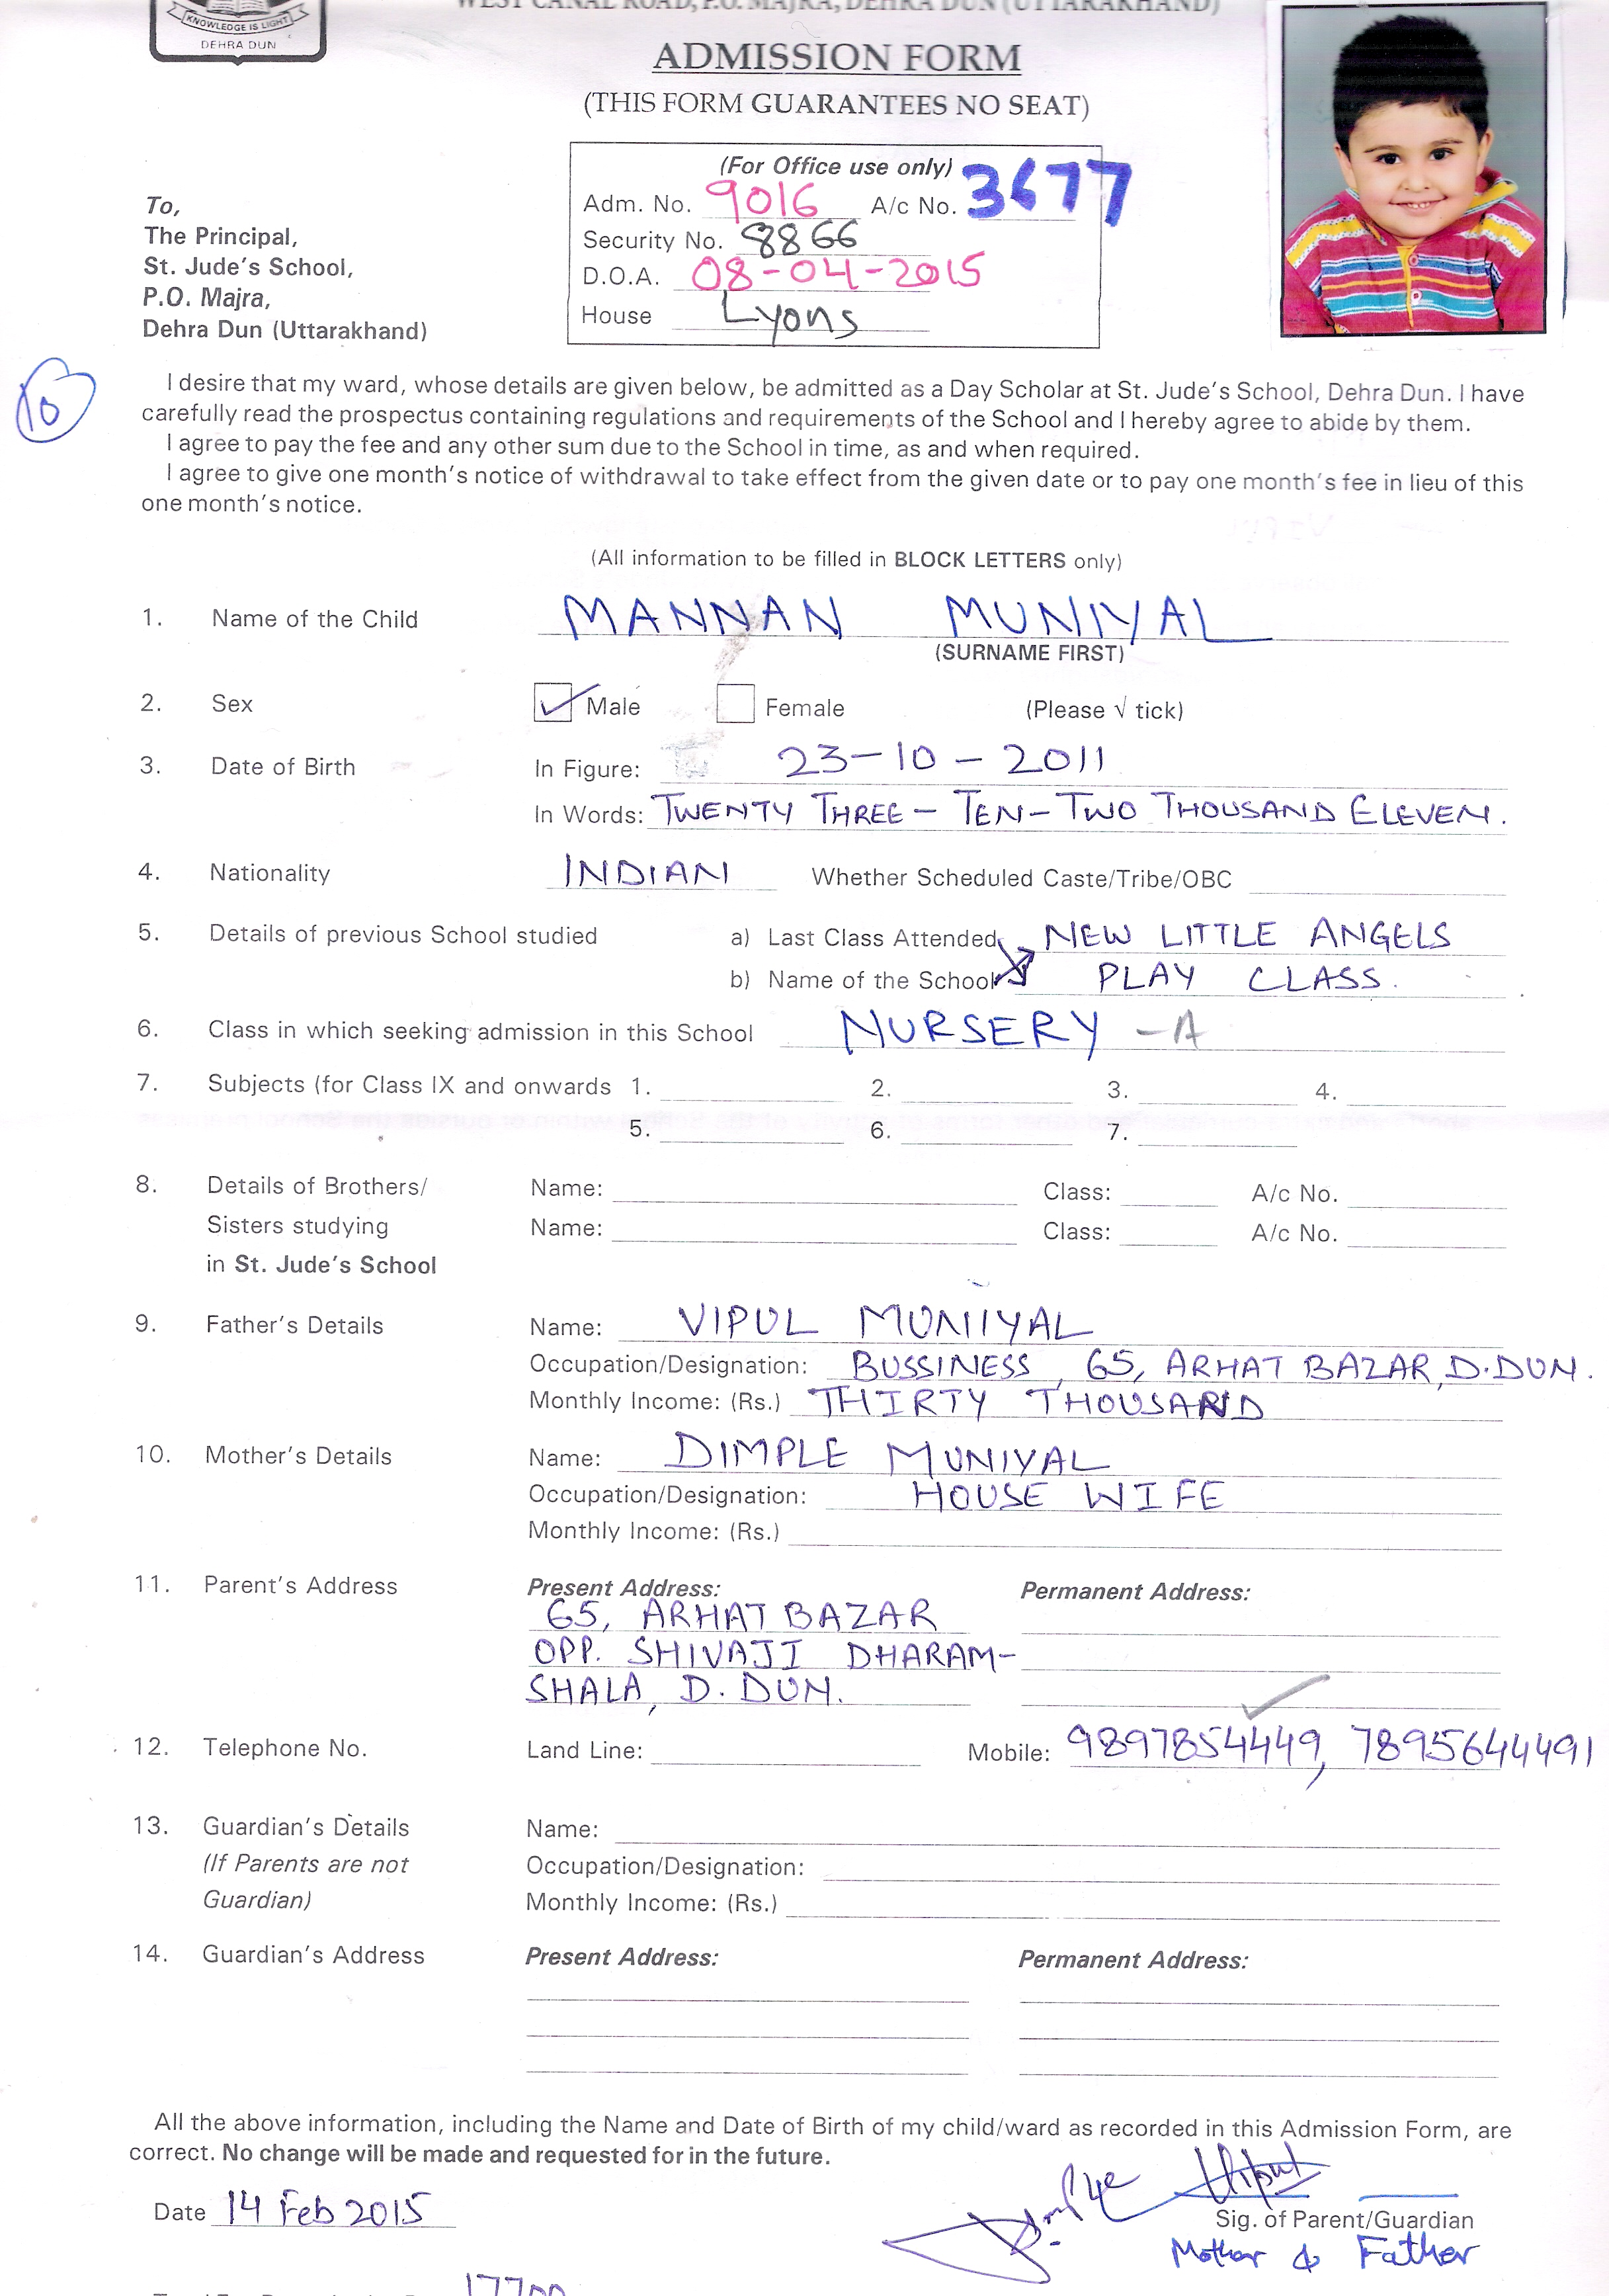 WEST CANAL ROAD, P.O. MAJRA, DEHRA DUN (UTTARAKHAND)
KNOWLEDGE IS LIGHT
DEHRA DUN
ADMISSION FORM
(THIS FORM GUARANTEES NO SEAT)
(For Office use only)
Adm. No. 9016 A/c No. 3677
Security No. 8866
D.O.A. 08-04-2015
House Lyons
To,
The Principal,
St. Jude's School,
P.O. Majra,
Dehra Dun (Uttarakhand)
10
I desire that my ward, whose details are given below, be admitted as a Day Scholar at St. Jude's School, Dehra Dun. I have
carefully read the prospectus containing regulations and requirements of the School and I hereby agree to abide by them.
I agree to pay the fee and any other sum due to the School in time, as and when required.
I agree to give one month's notice of withdrawal to take effect from the given date or to pay one month's fee in lieu of this
one month's notice.
(All information to be filled in BLOCK LETTERS only)
1. Name of the Child MANNAN MUNIYAL
(SURNAME FIRST)
2. Sex ✓ Male Female (Please √ tick)
3. Date of Birth In Figure: 23-10-2011
In Words: TWENTY THREE - TEN - TWO THOUSAND ELEVEN.
4. Nationality INDIAN Whether Scheduled Caste/Tribe/OBC
5. Details of previous School studied a) Last Class Attended NEW LITTLE ANGELS
b) Name of the School PLAY CLASS.
6. Class in which seeking admission in this School NURSERY -A
7. Subjects (for Class IX and onwards 1. 2. 3. 4.
5. 6. 7.
8. Details of Brothers/ Name: Class: A/c No.
Sisters studying Name: Class: A/c No.
in St. Jude's School
9. Father's Details Name: VIPUL MUNIYAL
Occupation/Designation: BUSSINESS, 65, ARHAT BAZAR, D.DUN.
Monthly Income: (Rs.) THIRTY THOUSAND
10. Mother's Details Name: DIMPLE MUNIYAL
Occupation/Designation: HOUSE WIFE
Monthly Income: (Rs.)
11. Parent's Address Present Address: Permanent Address:
65, ARHAT BAZAR
OPP. SHIVAJI DHARAM-
SHALA, D. DUN.
12. Telephone No. Land Line: Mobile: 9897854449, 7895644491
13. Guardian's Details Name:
(If Parents are not Occupation/Designation:
Guardian) Monthly Income: (Rs.)
14. Guardian's Address Present Address: Permanent Address:
All the above information, including the Name and Date of Birth of my child/ward as recorded in this Admission Form, are
correct. No change will be made and requested for in the future.
Date 14 Feb 2015
Dimple Vipul
Sig. of Parent/Guardian
Mother & Father
17700